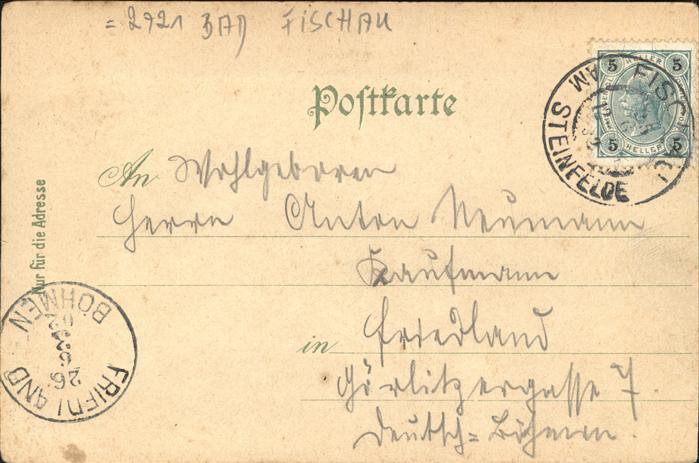 = 2721 BAD FISCHAU
Postkarte
5 HELLER 5
5 HELLER 5
FISCHAU
AM STEINFELDE
An Wohlgeboren
Herrn Anton Neumann
Kaufmann
in Friedland
Görlitzergasse 7.
Deutsch=Böhmen.
Nur für die Adresse
FRIEDLAND
BÖHMEN
26